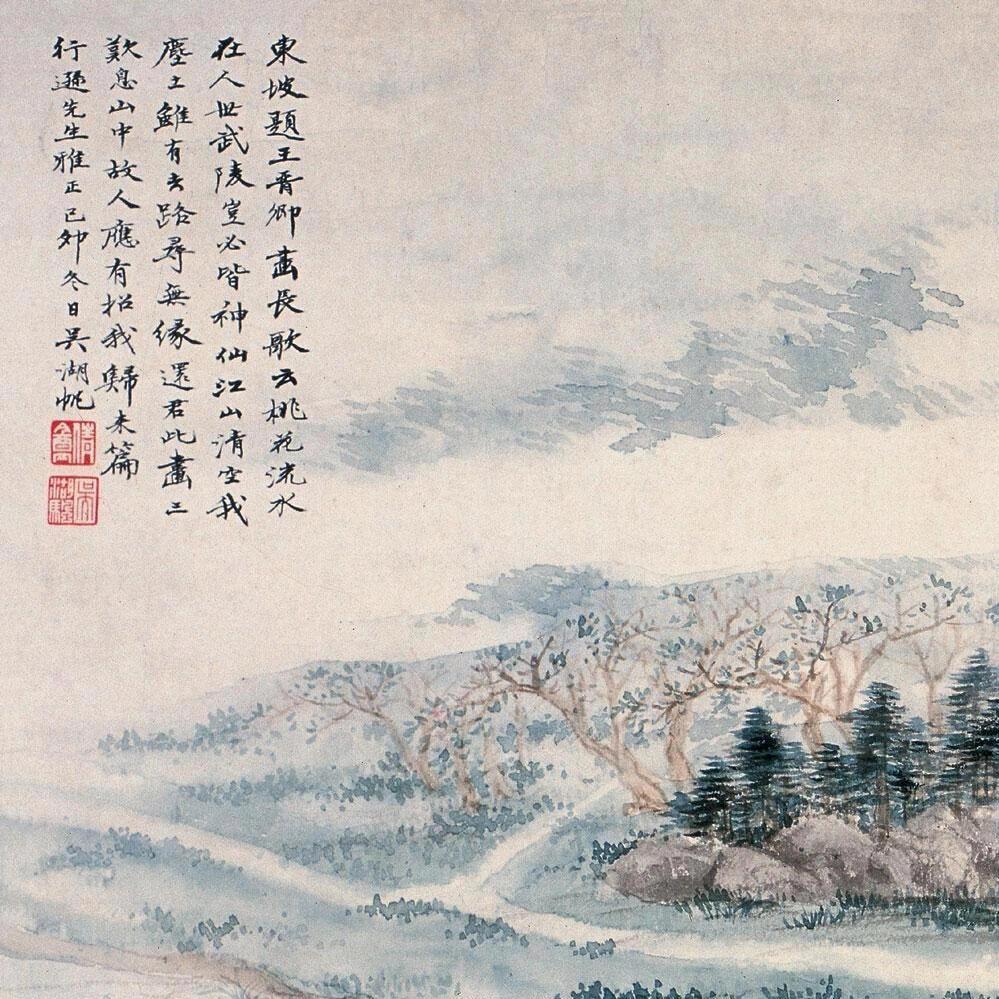 東坡題王晋卿畫長歌云桃花流水
在人世武陵豈必皆神仙江山清空我
塵土雖有去路尋無緣還君此畫三
歎息山中故人應有招我歸来篇
行遜先生雅正己卯冬日吳湖帆
倩盦
吳湖颿